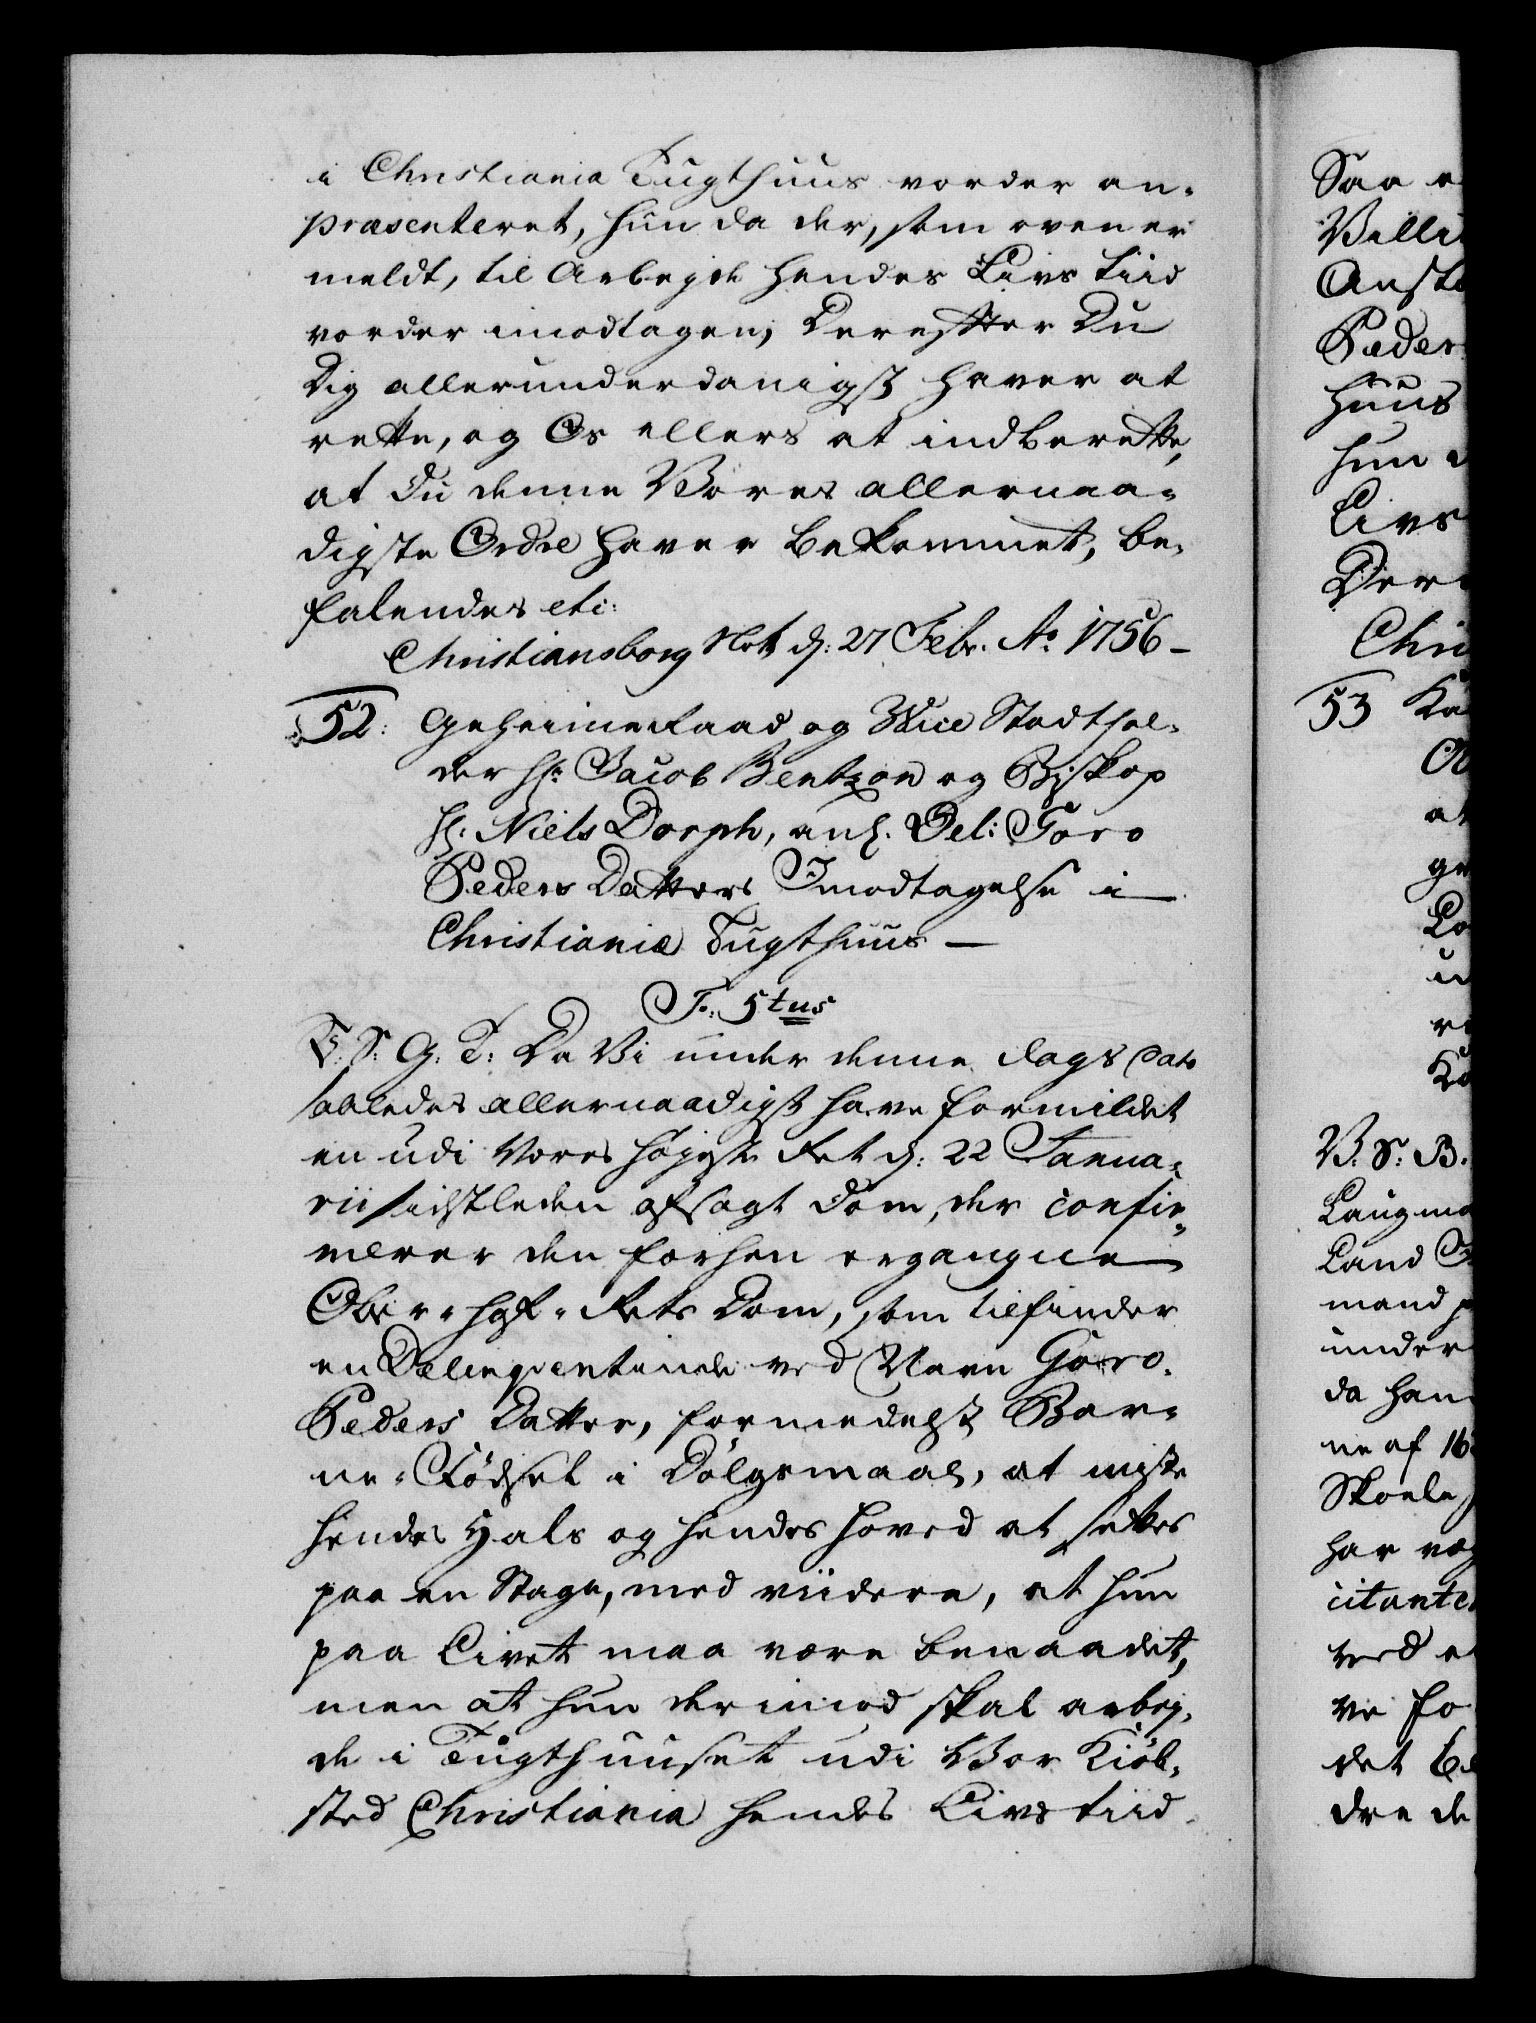 i Christiania Tugthuus vorder an-
præsenteret, hun da der, som oven er
meldt, til Arbejde hendes Livs Tiid
vorder imodtagen; Derefter Du
Dig allerunderdanigst haver at
rette, og Os ellers at indberette,
at du denne Vores allernaa-
digste Ordre haver bekommet, be-
falendes etc:
Christiansborg Slott d: 27 Febr. Ao 1756 –
52: Geheimeraad og Vice Stadthol-
der Hr: Jacob Bentzon og Biskop
Hr: Niels Dorph, anl. Del: Goro
Peders Datters Imodtagelse i
Christiania Tugthuus —
F: 5tus
V: S: G: T: Da Vi under denne Dags Dato
saaledes allernaadigst have formildet
en udi Vores Højeste Ret d: 22 Janua-
rii sidstleden afsagt Dom, der confir-
merer den forhen ergangne
Ober-Hof-Rets Dom, som tilfinder
en Delinqventinde ved Navn Goro
Peders Datter, formedelst Bar-
ne-Fødsel i Dølgsmaal, at miste
hendes Hals og hendes Hoved at settes
paa en Stage, med viidere, at hun
paa Livet maa være benaadet,
men at hun derimod skal arbej-
de i Tugthuuset udi Vor Kiøb-
sted Christiania hendes Livs tiid
Saa
Peders
Huus
hun
Livs
53
V: S: B.
Laugma
Land
mand
under
da han
ne af 16
Skoele
har
ved
ve fo
det
dre de